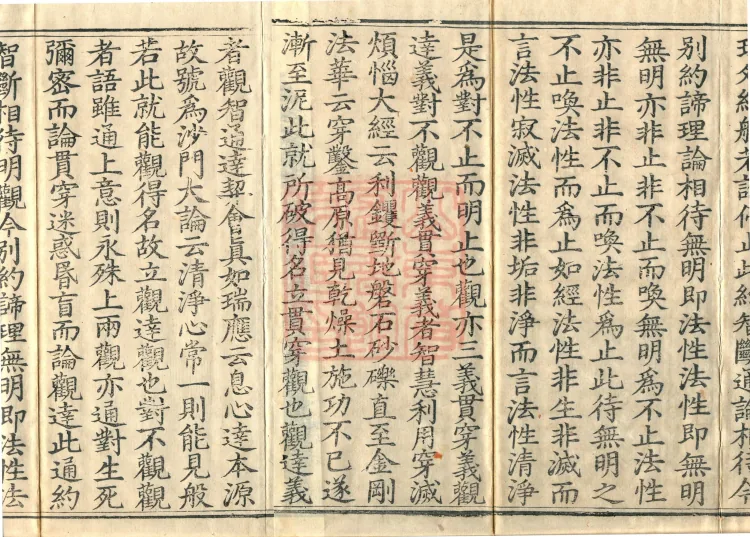 別約諦理論相待無明即法性法性即無明
無明亦非止非不止而喚無明爲不止法性
亦非止非不止而喚法性爲止此待無明之
不止喚法性而爲止如經法性非生非滅而
言法性寂滅法性非垢非淨而言法性清淨
是爲對不止而明止也觀亦三義貫穿義觀
達義對不觀觀義貫穿義者智慧利用穿滅
煩惱大經云利钁斲地磐石砂礫直至金剛
法華云穿鑿高原猶見乾燥土施功不已遂
漸至泥此就所破得名立貫穿觀也觀達義
者觀智通達契會眞如瑞應云息心達本源
故號爲沙門大論云清淨心常一則能見般
若此就能觀得名故立觀達觀也對不觀觀
者語雖通上意則永殊上兩觀亦通對生死
彌密而論貫穿迷惑昬盲而論觀達此通約
智斷相待明觀今別約諦理無明即法性法